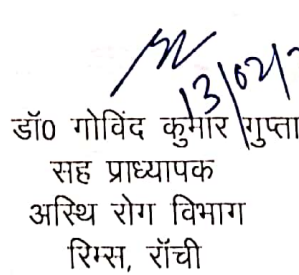 13/02/
डॉ0 गोविंद कुमार गुप्ता
सह प्राध्यापक
अस्थि रोग विभाग
रिम्स, रॉची